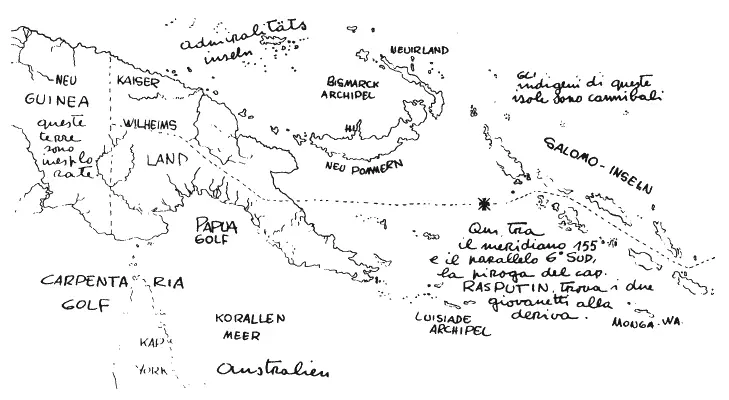 admiralitäts
inseln
NEUIRLAND
BISMARCK
ARCHIPEL
GLI
indigeni di queste
isole sono cannibali
NEU
GUINEA
queste
terre
sono
inesplo
rate
KAISER
WILHEIMS
LAND
NEU POMMERN
SALOMO-INSELN
PAPUA
GOLF
Qui, tra
il meridiano 155°
e il parallelo 6° SUD,
la piroga del cap.
RASPUTIN, trova i due
giovanetti alla
deriva.
CARPENTARIA
GOLF
KORALLEN
MEER
LUISIADE
ARCHIPEL
MONGA-WA.
KAP
YORK
Australien